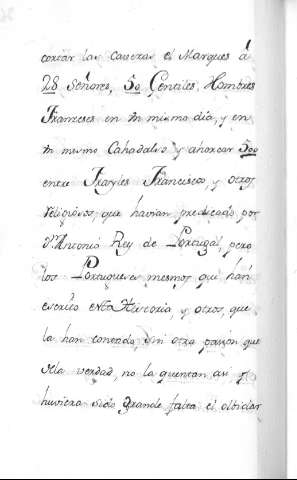 cortar las cavezas el Marques á
28 Señores, 50 Gentiles Hombres
Franceses en un mismo dia, y en
un mesmo Cahadalso y ahorcar 500
entre Frayles Franciscos, y otros
religiosos que havian predicado por
D. Antonio Rey de Portugal, pero
los Portugueses mesmos que han
escrito esta Historia, y otros, que
la han tomado, sin otra pasion que
de la verdad, no la quentan asi y
huviera sido grande falta el olbidar